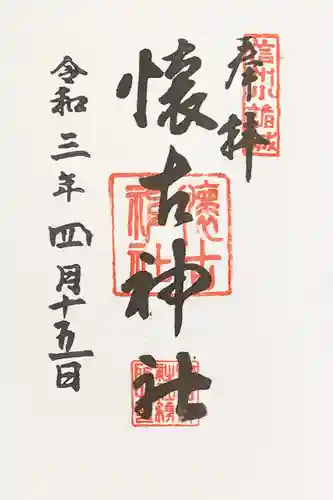 奉拝
信州小諸城
懐古神社
懐古神社
令和三年四月十五日